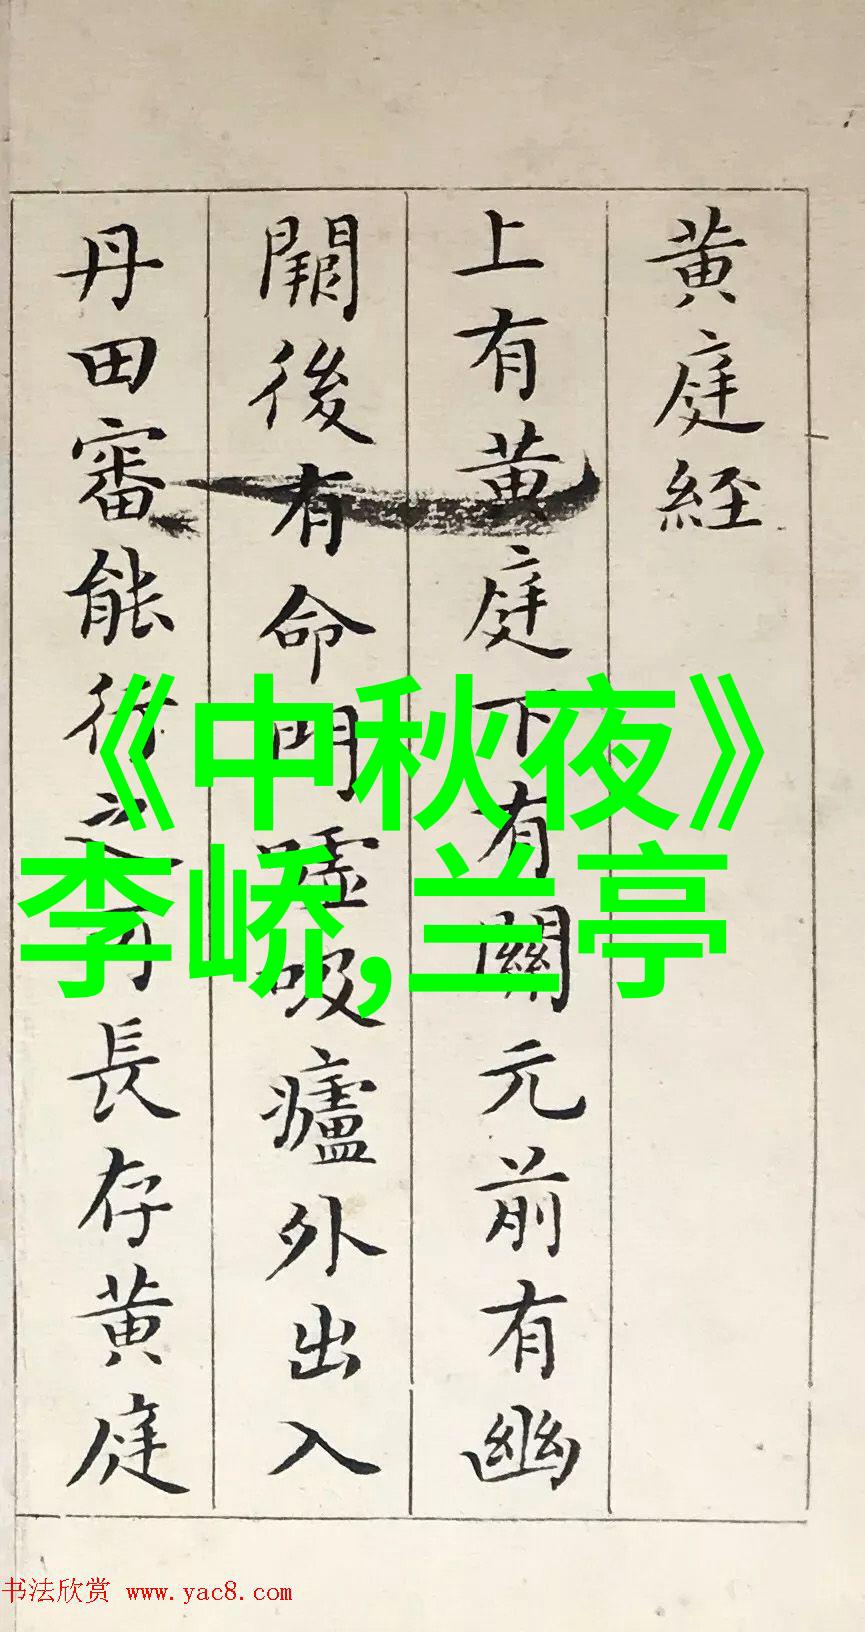 黄庭經
上有黄庭下有關元前有幽
闕後有命門噓吸廬外出入
丹田審能行之可長存黄庭
《中秋夜》
李峤,兰亭
书法欣赏 www.yac8.com